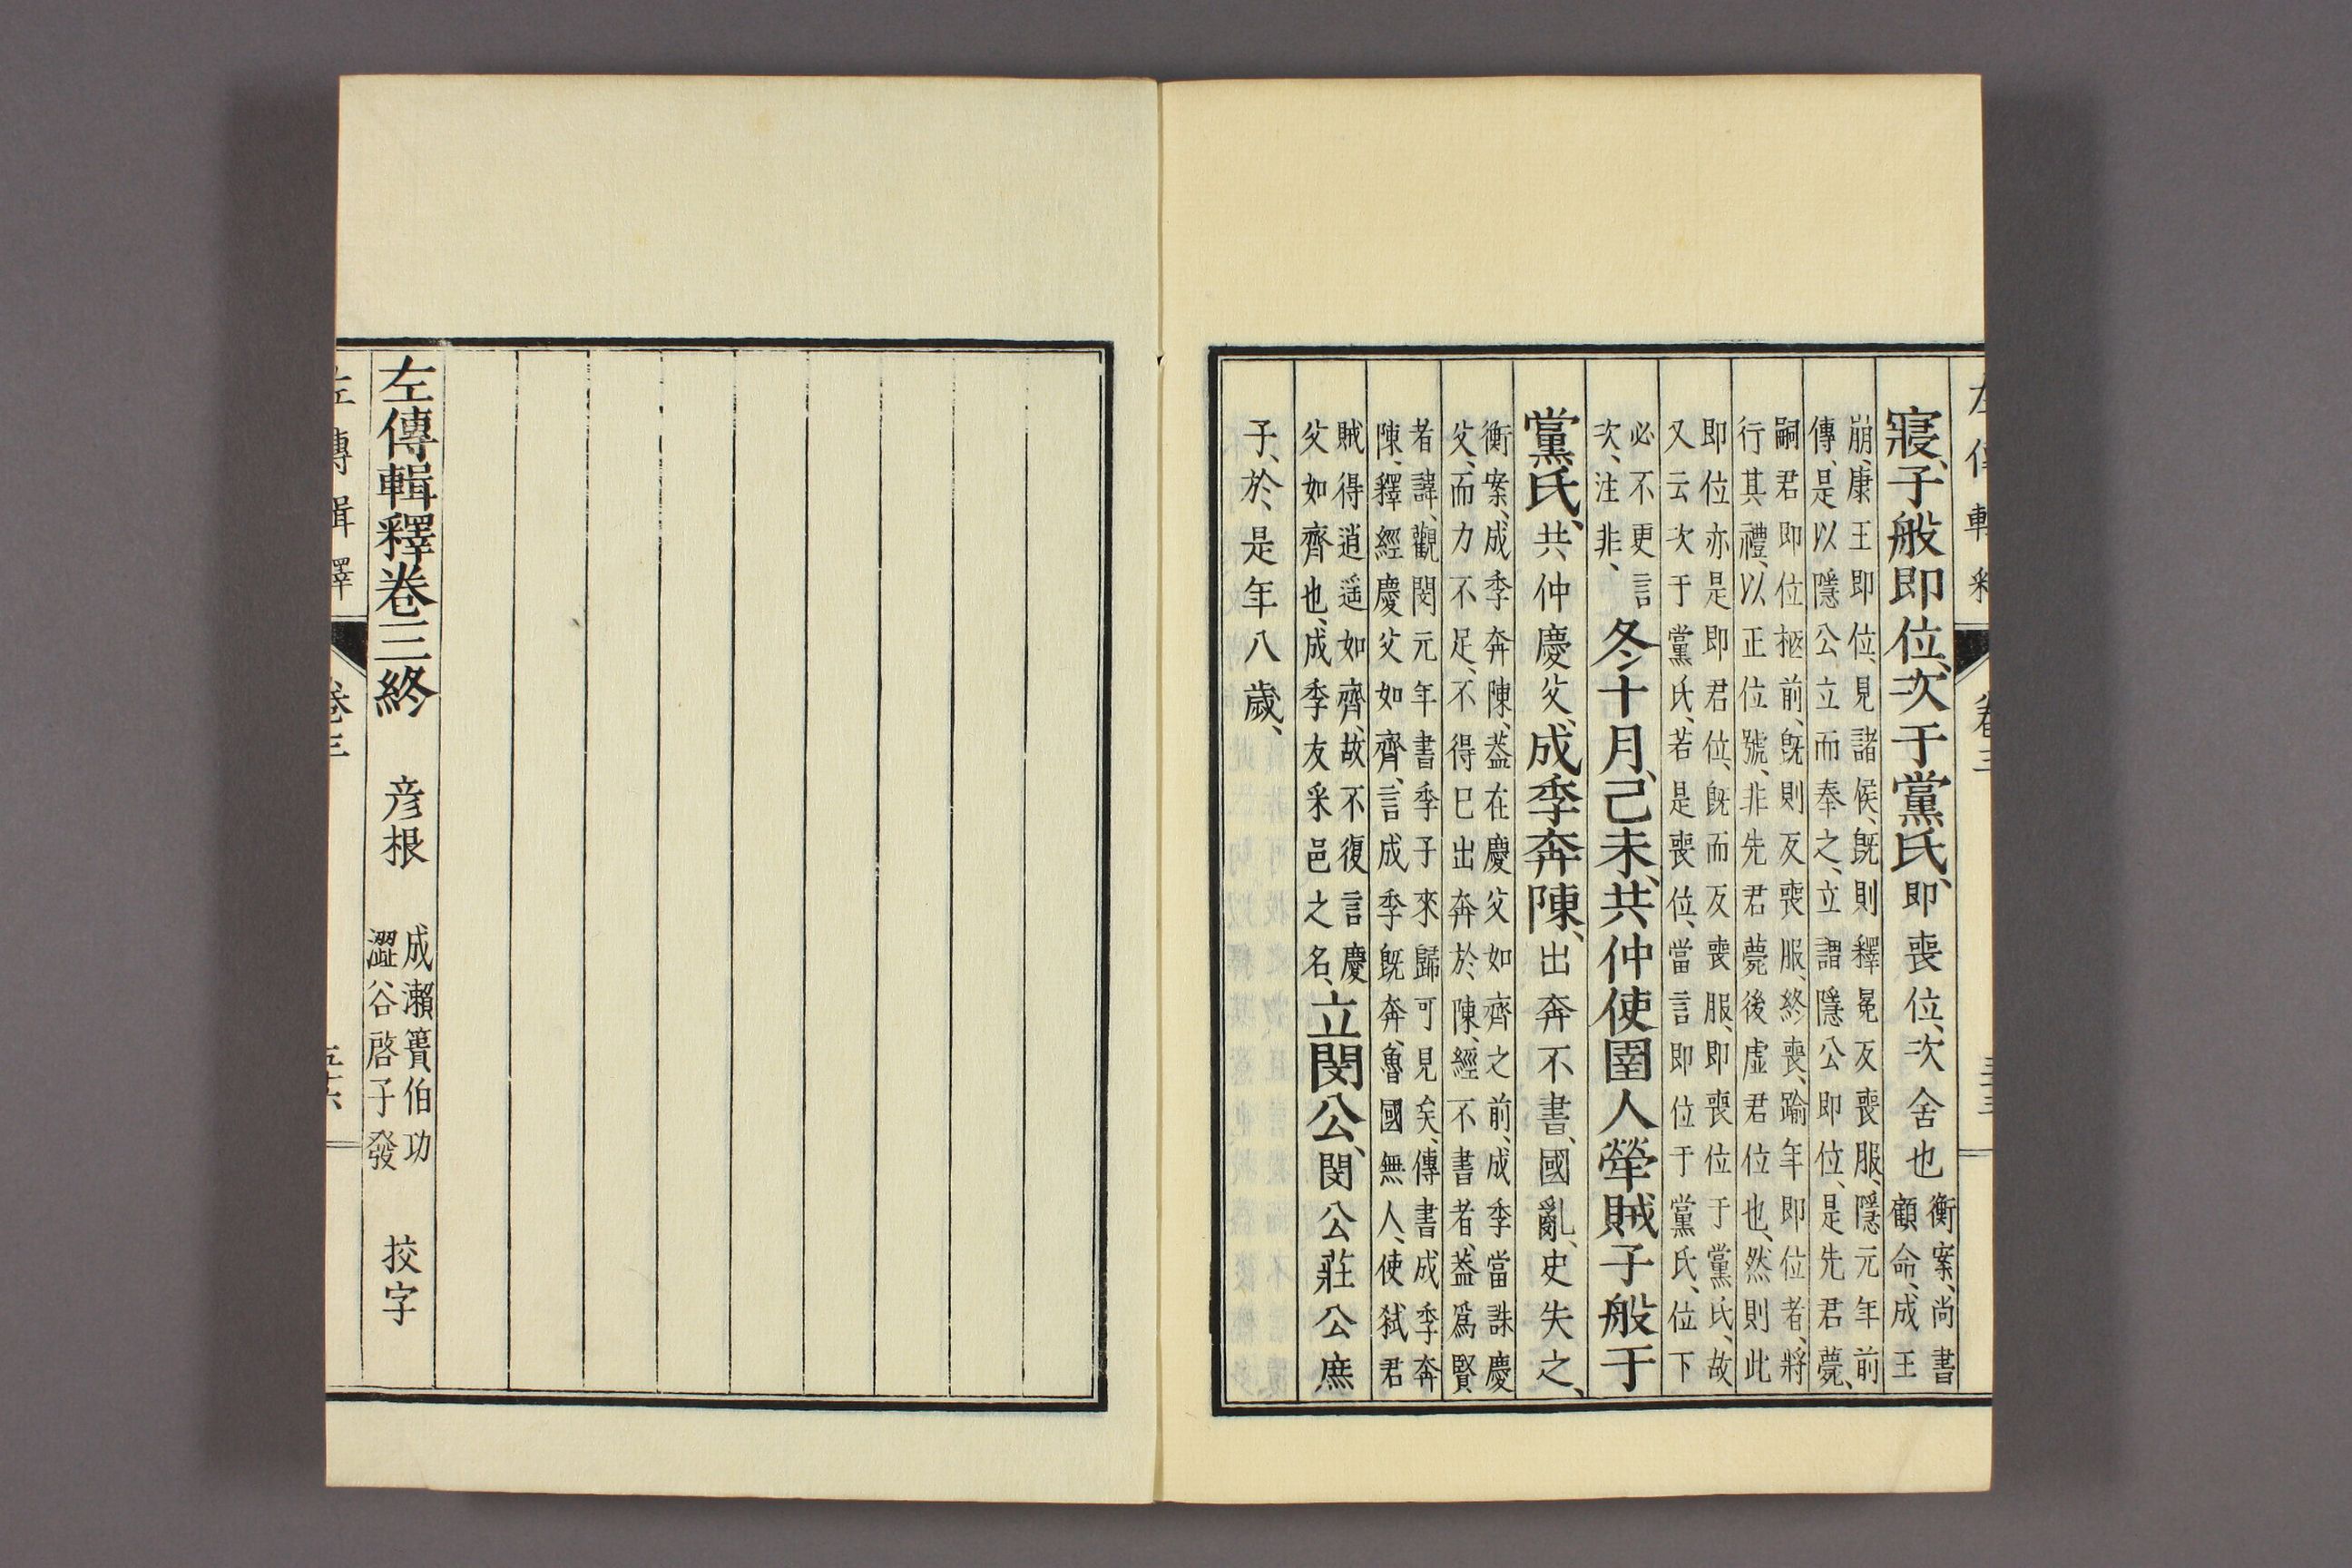 寢、子般即位、次于黨氏、即喪位、次舍也衡案、尚書顧命、成王
崩、康王即位、見諸侯、旣則釋冕反喪服、隱元年前
傳、是以隱公立而奉之、立謂隱公即位、是先君薨、
嗣君即位柩前、旣則反喪服、終喪、踰年即位者、將
行其禮、以正位號、非先君薨後虛君位也、然則此
即位亦是即君位、旣而反喪服、即喪位于黨氏、故
又云次于黨氏、若是喪位、當言即位于黨氏、位下
必不更言
次、注非、
冬十月、己未、共仲使圉人犖賊子般于
黨氏、共、仲慶父、成季奔陳、出奔不書、國亂、史失之、
衡案、成季奔陳、蓋在慶父如齊之前、成季當誅慶
父、而力不足、不得巳出奔於、陳、經不書者、蓋爲賢
者諱、觀閔元年書季子來歸可見矣、傳書成季奔
陳、釋經慶父如齊、言成季旣奔、魯國無人、使弑君
賊得逍遥如齊、故不復言慶
父如齊也、成季友釆邑之名、
立閔公、閔公莊公庶
子、於、是年八歲、
卷三
左傳輯釋卷三終　彦根　成瀨簣伯功　澀谷啓子發　挍字
左傳輯釋　卷三